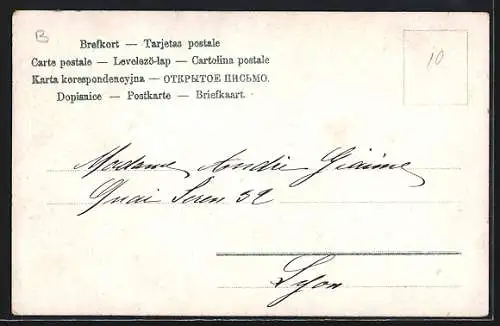 B
Brefkort — Tarjetas postale
Carte postale — Levelező-lap — Cartolina postale
Karta korespondencyjna — ОТКРЫТОЕ ПИСЬМО.
Dopisnice — Postkarte — Briefkaart.
10
Madame
Quai 32
Lyon